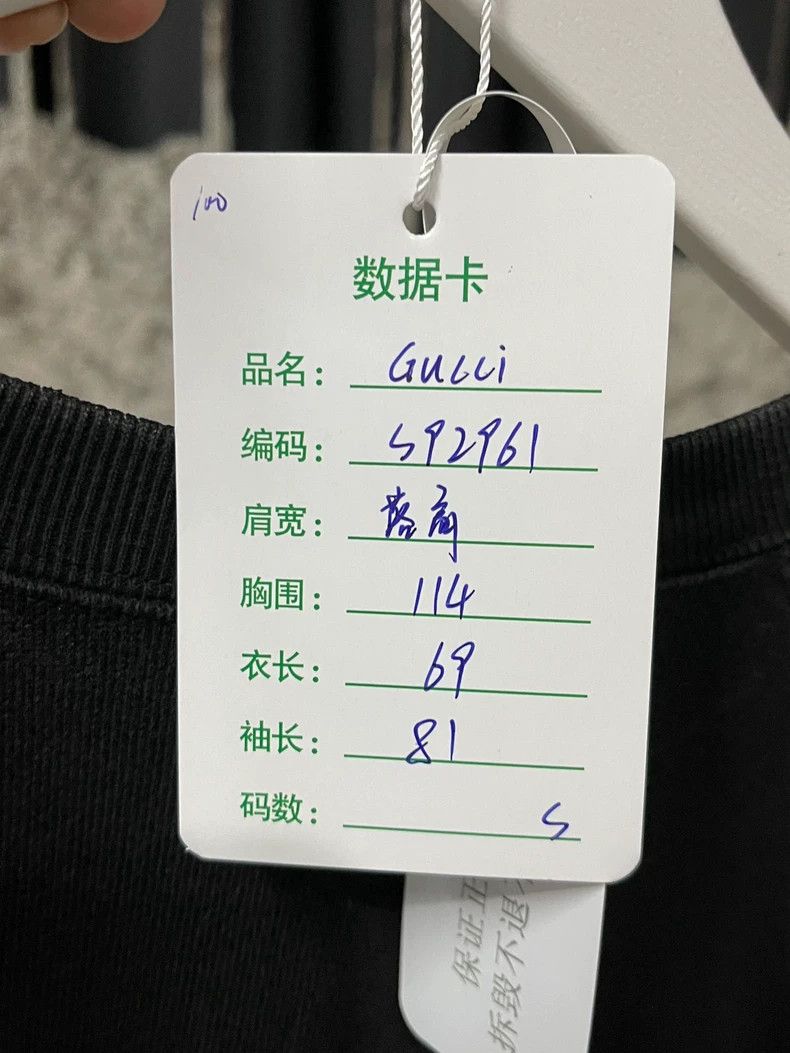 100
数据卡
品名： Gucci
编码： S92961
肩宽： 落肩
胸围： 114
衣长： 69
袖长： 81
码数： S
保证正
拆毁不退